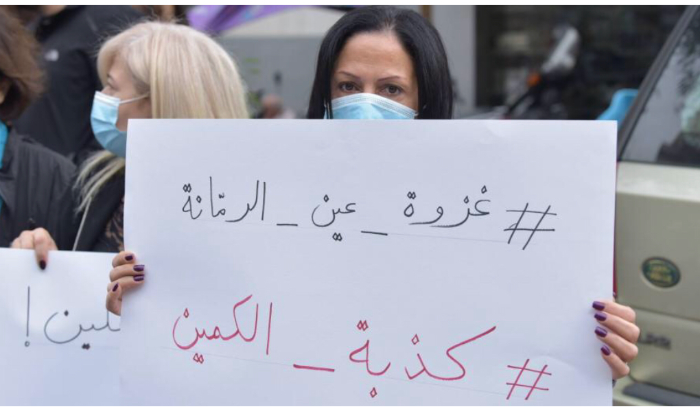 #غزوة_عين_الرمّانة
#كذبة_الكمين